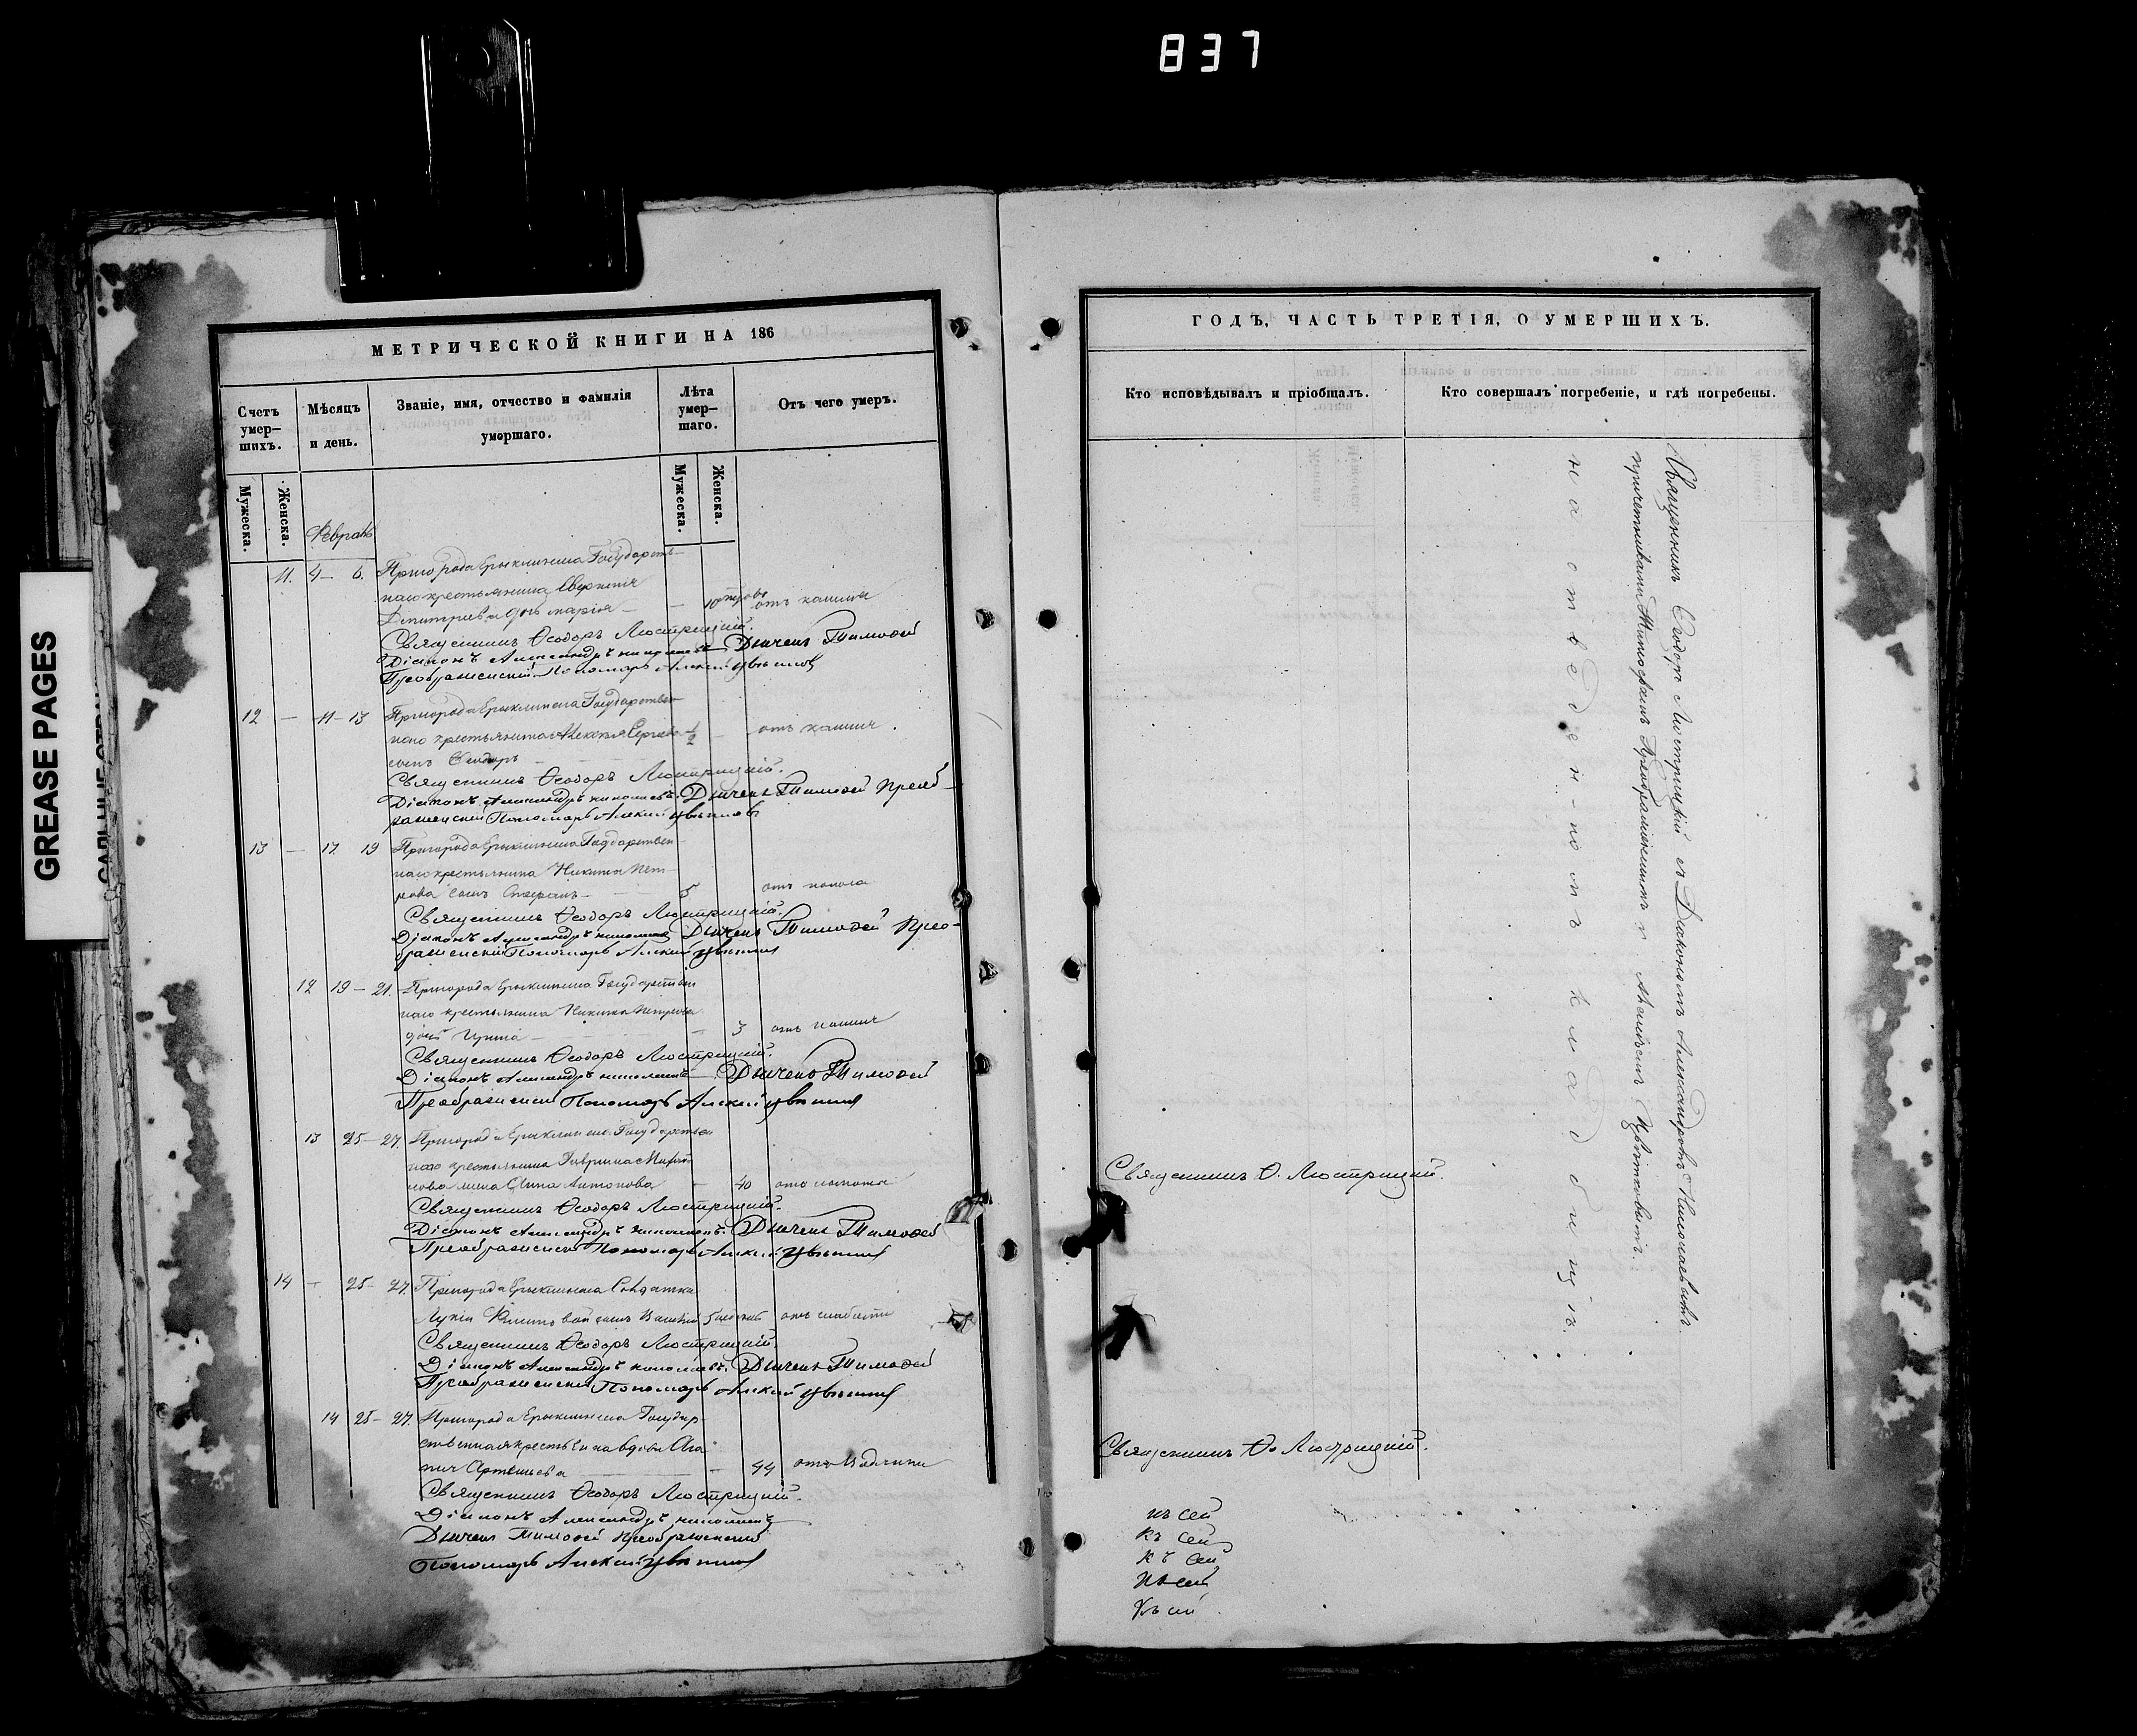 837
GREASE PAGES
МЕТРИЧЕСКОЙ КНИГИ НА 186
Счетъ умер-
шихъ.
Мѣсяцъ
и день.
Званіе, имя, отчество и фамилія
умершаго.
Лѣта
умер-
шаго.
Отъ чего умеръ.
Мужеска.
Женска.
Мужеска.
Женска.
Февраль
11. 4 — 6. Пригорода Ерыклинска Государств-
наго крестьянина
Дмитріева дочь Марія — — 10 отъ кашля
Священникъ Ѳеодоръ Люстрицкій.
Діаконъ Александръ Николаевъ Дьячекъ Тимоѳей
Преображенскій Пономарь Алексій Цвѣтковъ
12 — 11 — 13 Пригорода Ерыклинска Государствен-
наго крестьянина Алексѣя Сергѣева ½ — отъ кашля.
сынъ Ѳеодоръ
Священникъ Ѳеодоръ Люстрицкій.
Діаконъ Александръ Николаевъ. Дьячекъ Тимоѳей Преоб-
раженскій Пономарь Алексій Цвѣтковъ
13 — 17 19 Пригорода Ерыклинска Государствен-
наго крестьянина Никиты Пет-
рова сынъ Стефанъ — 5 отъ поноса
Священникъ Ѳеодоръ Люстрицкій.
Діаконъ Александръ Николаевъ Дьячекъ Тимоѳей Прео-
браженскій Пономарь Алексій Цвѣтковъ
12 19 — 21. Пригорода Ерыклинска Государствен-
наго крестьянина Никиты Петрова
дочь Ирина — — 3 отъ кашля
Священникъ Ѳеодоръ Люстрицкій.
Діаконъ Александръ Николаевъ Дьячекъ Тимоѳей
Преображенскій Пономарь Алексій Цвѣтковъ
13 25 — 27. Пригорода Ерыклинска Государствен-
наго крестьянина Гаврила
жена Анна Антонова — 40
Священникъ Ѳеодоръ Люстрицкій.
Діаконъ Александръ Николаевъ. Дьячекъ Тимоѳей
Преображенскій Пономарь Алексій Цвѣтковъ
14 — 25 — 27. Пригорода Ерыклинска Солдатки
сынъ Василій 5 отъ слабости
Священникъ Ѳеодоръ Люстрицкій.
Діаконъ Александръ Николаевъ. Дьячекъ Тимоѳей
Преображенскій Пономарь Алексій Цвѣтковъ
14 25 — 27. Пригорода Ерыклинска Государ-
ственная вдова Ага-
пія Артемьева — 44
Священникъ Ѳеодоръ Люстрицкій.
Діаконъ Александръ Николаевъ
Дьячекъ Тимоѳей Преображенскій
Пономарь Алексій Цвѣтковъ
ГОДЪ, ЧАСТЬ ТРЕТІЯ, О УМЕРШИХЪ.
Кто исповѣдывалъ и пріобщалъ.
Кто совершалъ погребеніе, и гдѣ погребены.
Священникъ Ѳеодоръ Люстрицкій съ Діакономъ Александромъ Николаевымъ
причетниками Тимоѳеемъ Преображенскимъ и Алексіемъ Цвѣтковымъ.
на отведенномъ кладбищѣ.
Священникъ Ѳ. Люстрицкій.
Священникъ Ѳ. Люстрицкій.
къ сей
къ сей
къ сей
къ сей
къ сей